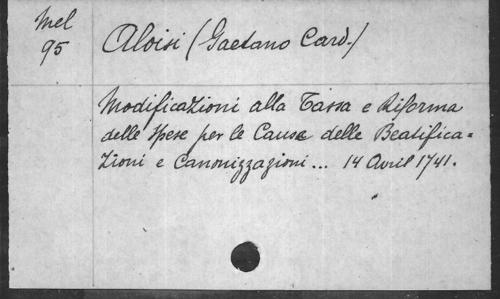 Mel
95
Aloisi (Gaetano Card.)
Modificazioni alla Tassa e Riforma
delle spese per le Cause delle Beatifica=
zioni e Canonizzazioni... 14 Avril 1741.